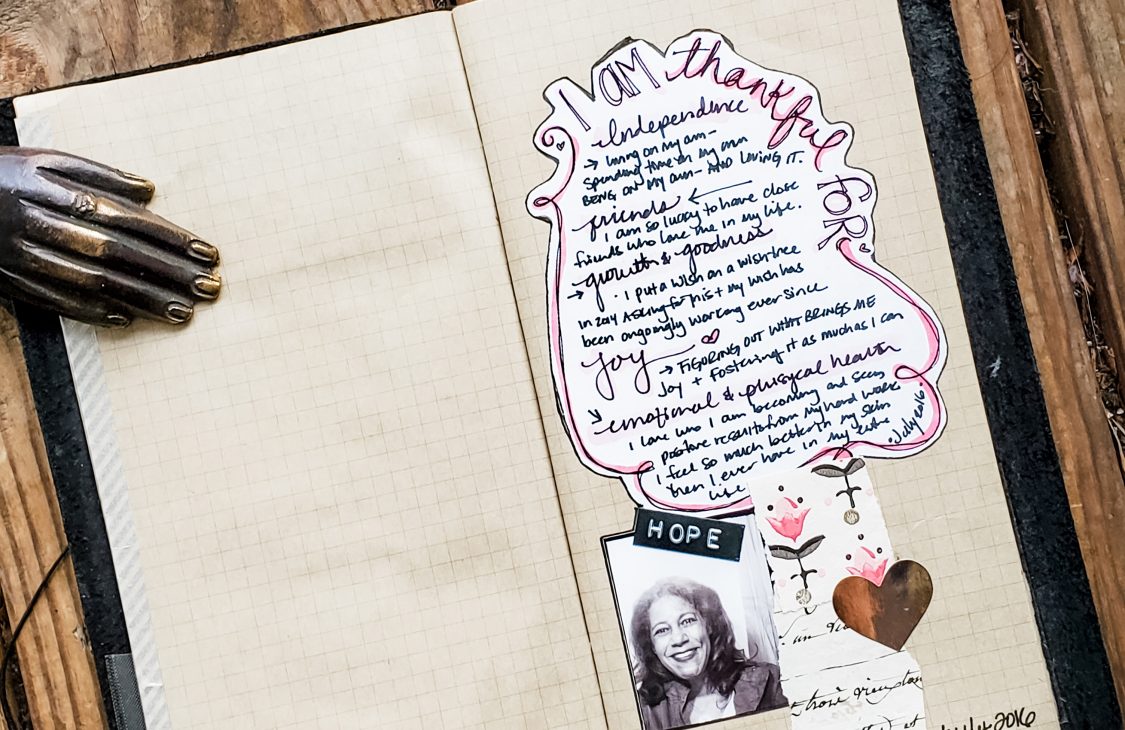 I AM thankful for
Independence
→ living on my own-
spending time on my own
BEING ON MY OWN- AND LOVING IT.
friends ←
I am so lucky to have close
friends who love me in my life.
growth & goodness
→ · I put a wish on a wish tree
in 2014 Asking for this + my wish has
been ongoingly working ever since
Joy
→ FIGORING OUT WHAT BRINGS ME
Joy + fostering it as much as I can
emotional & physical health
I love who I am becoming and seeing
positive results from my hard work
I feel so much better in my skin
then I ever have in my entire
life
·July 2016·
HOPE
2016